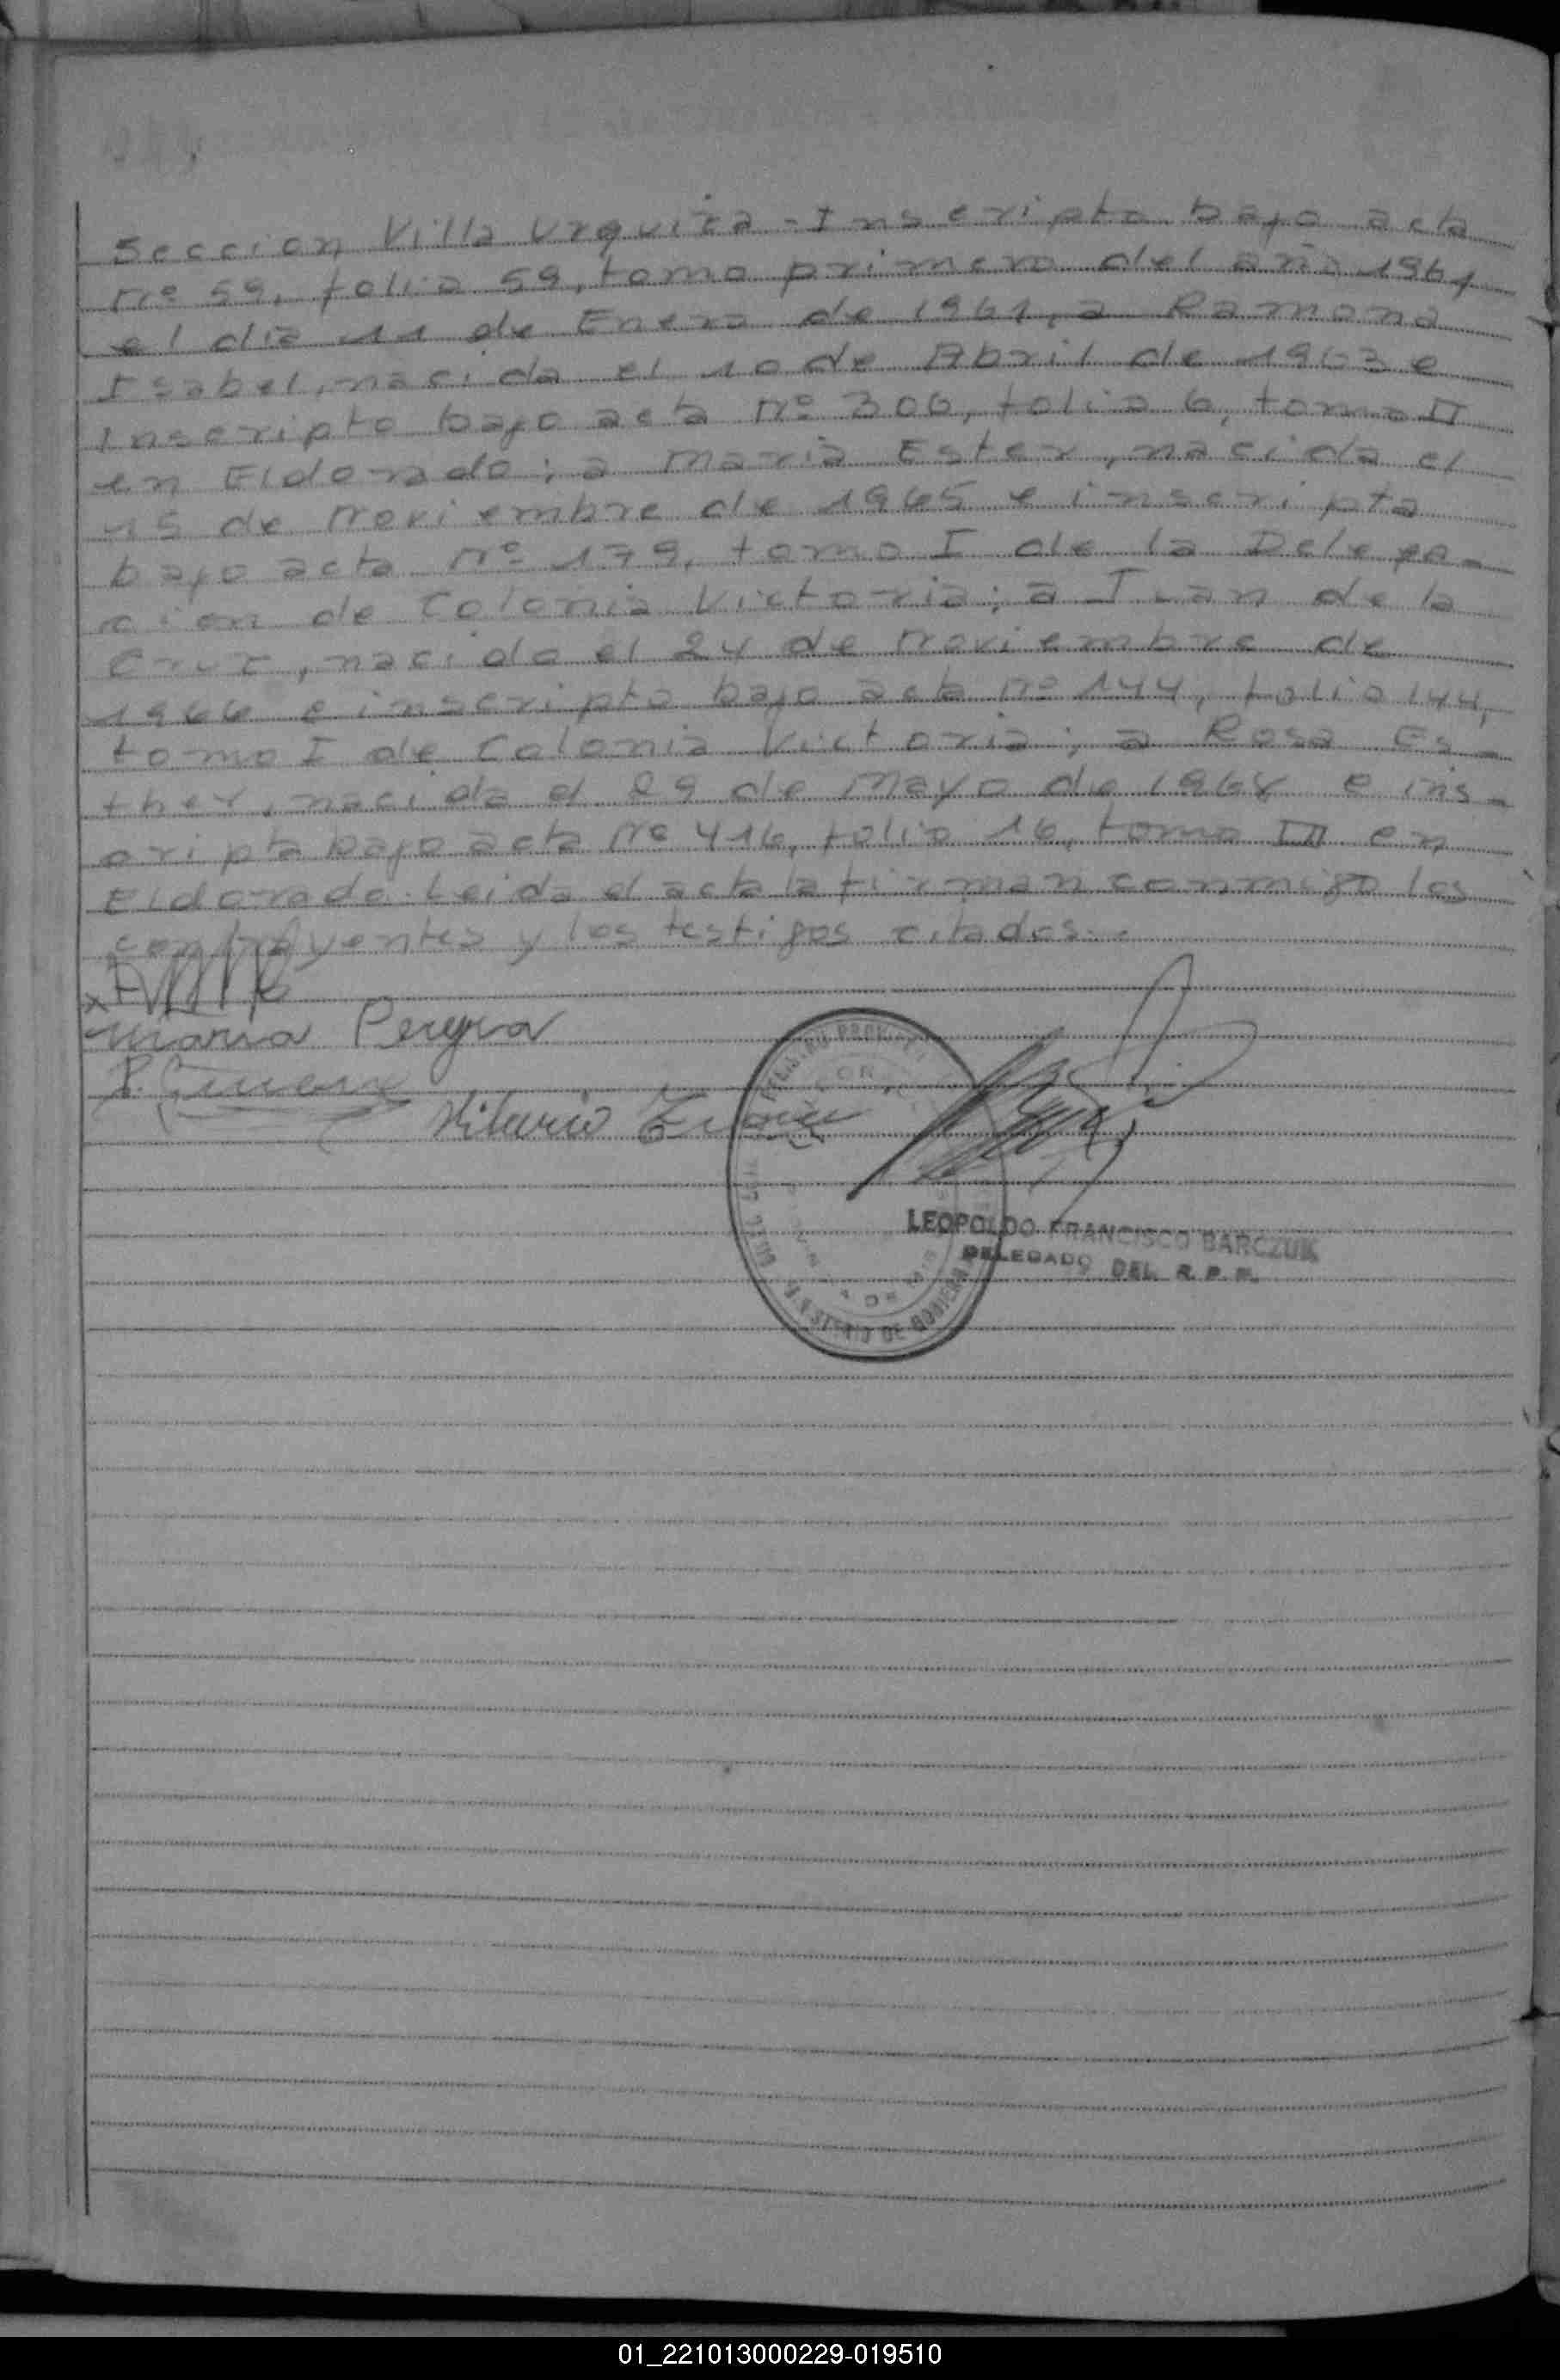 Seccion Villa Urquiza - Inscripto bajo acta
nº 59, folio 59, tomo primero del año 1961,
el dia 11 de Enero de 1961, a Ramona
Isabel, nacida el 10 de Abril de 1963 e
Inscripto bajo acta nº 306, folio 6, tomo II
en Eldorado; a Maria Ester, nacida el
15 de Noviembre de 1965 e inscripta
bajo acta Nº 179, tomo I de la Delega-
cion de Colonia Victoria; a Juan de la
Cruz, nacido el 24 de Noviembre de
1966 e inscripto bajo acta nº 144, folio 144,
tomo I de Colonia Victoria; a Rosa Es-
ther, nacida el 29 de Mayo de 1968 e ins-
cripta bajo acta Nº 416, folio 16, tomo III en
Eldorado. Leida el acta la firman conmigo los
contrayentes y los testigos citados.
x
Maria Pereyra
Hilario
LEOPOLDO FRANCISCO BARCZUK
DELEGADO DEL R. P. P.
MINISTERIO DE GOBIERNO
01_221013000229-019510